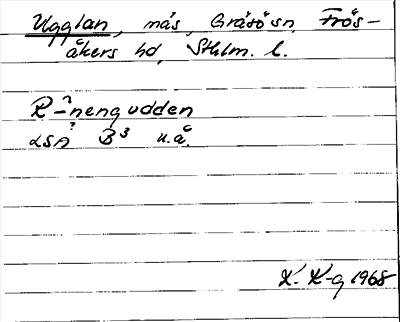 Ugglan, nås, Gräsö sn, Frös-
åkers hd, Sthlm. l.
R-nengudden
LSA B3 u.å.
K. K-g 1968